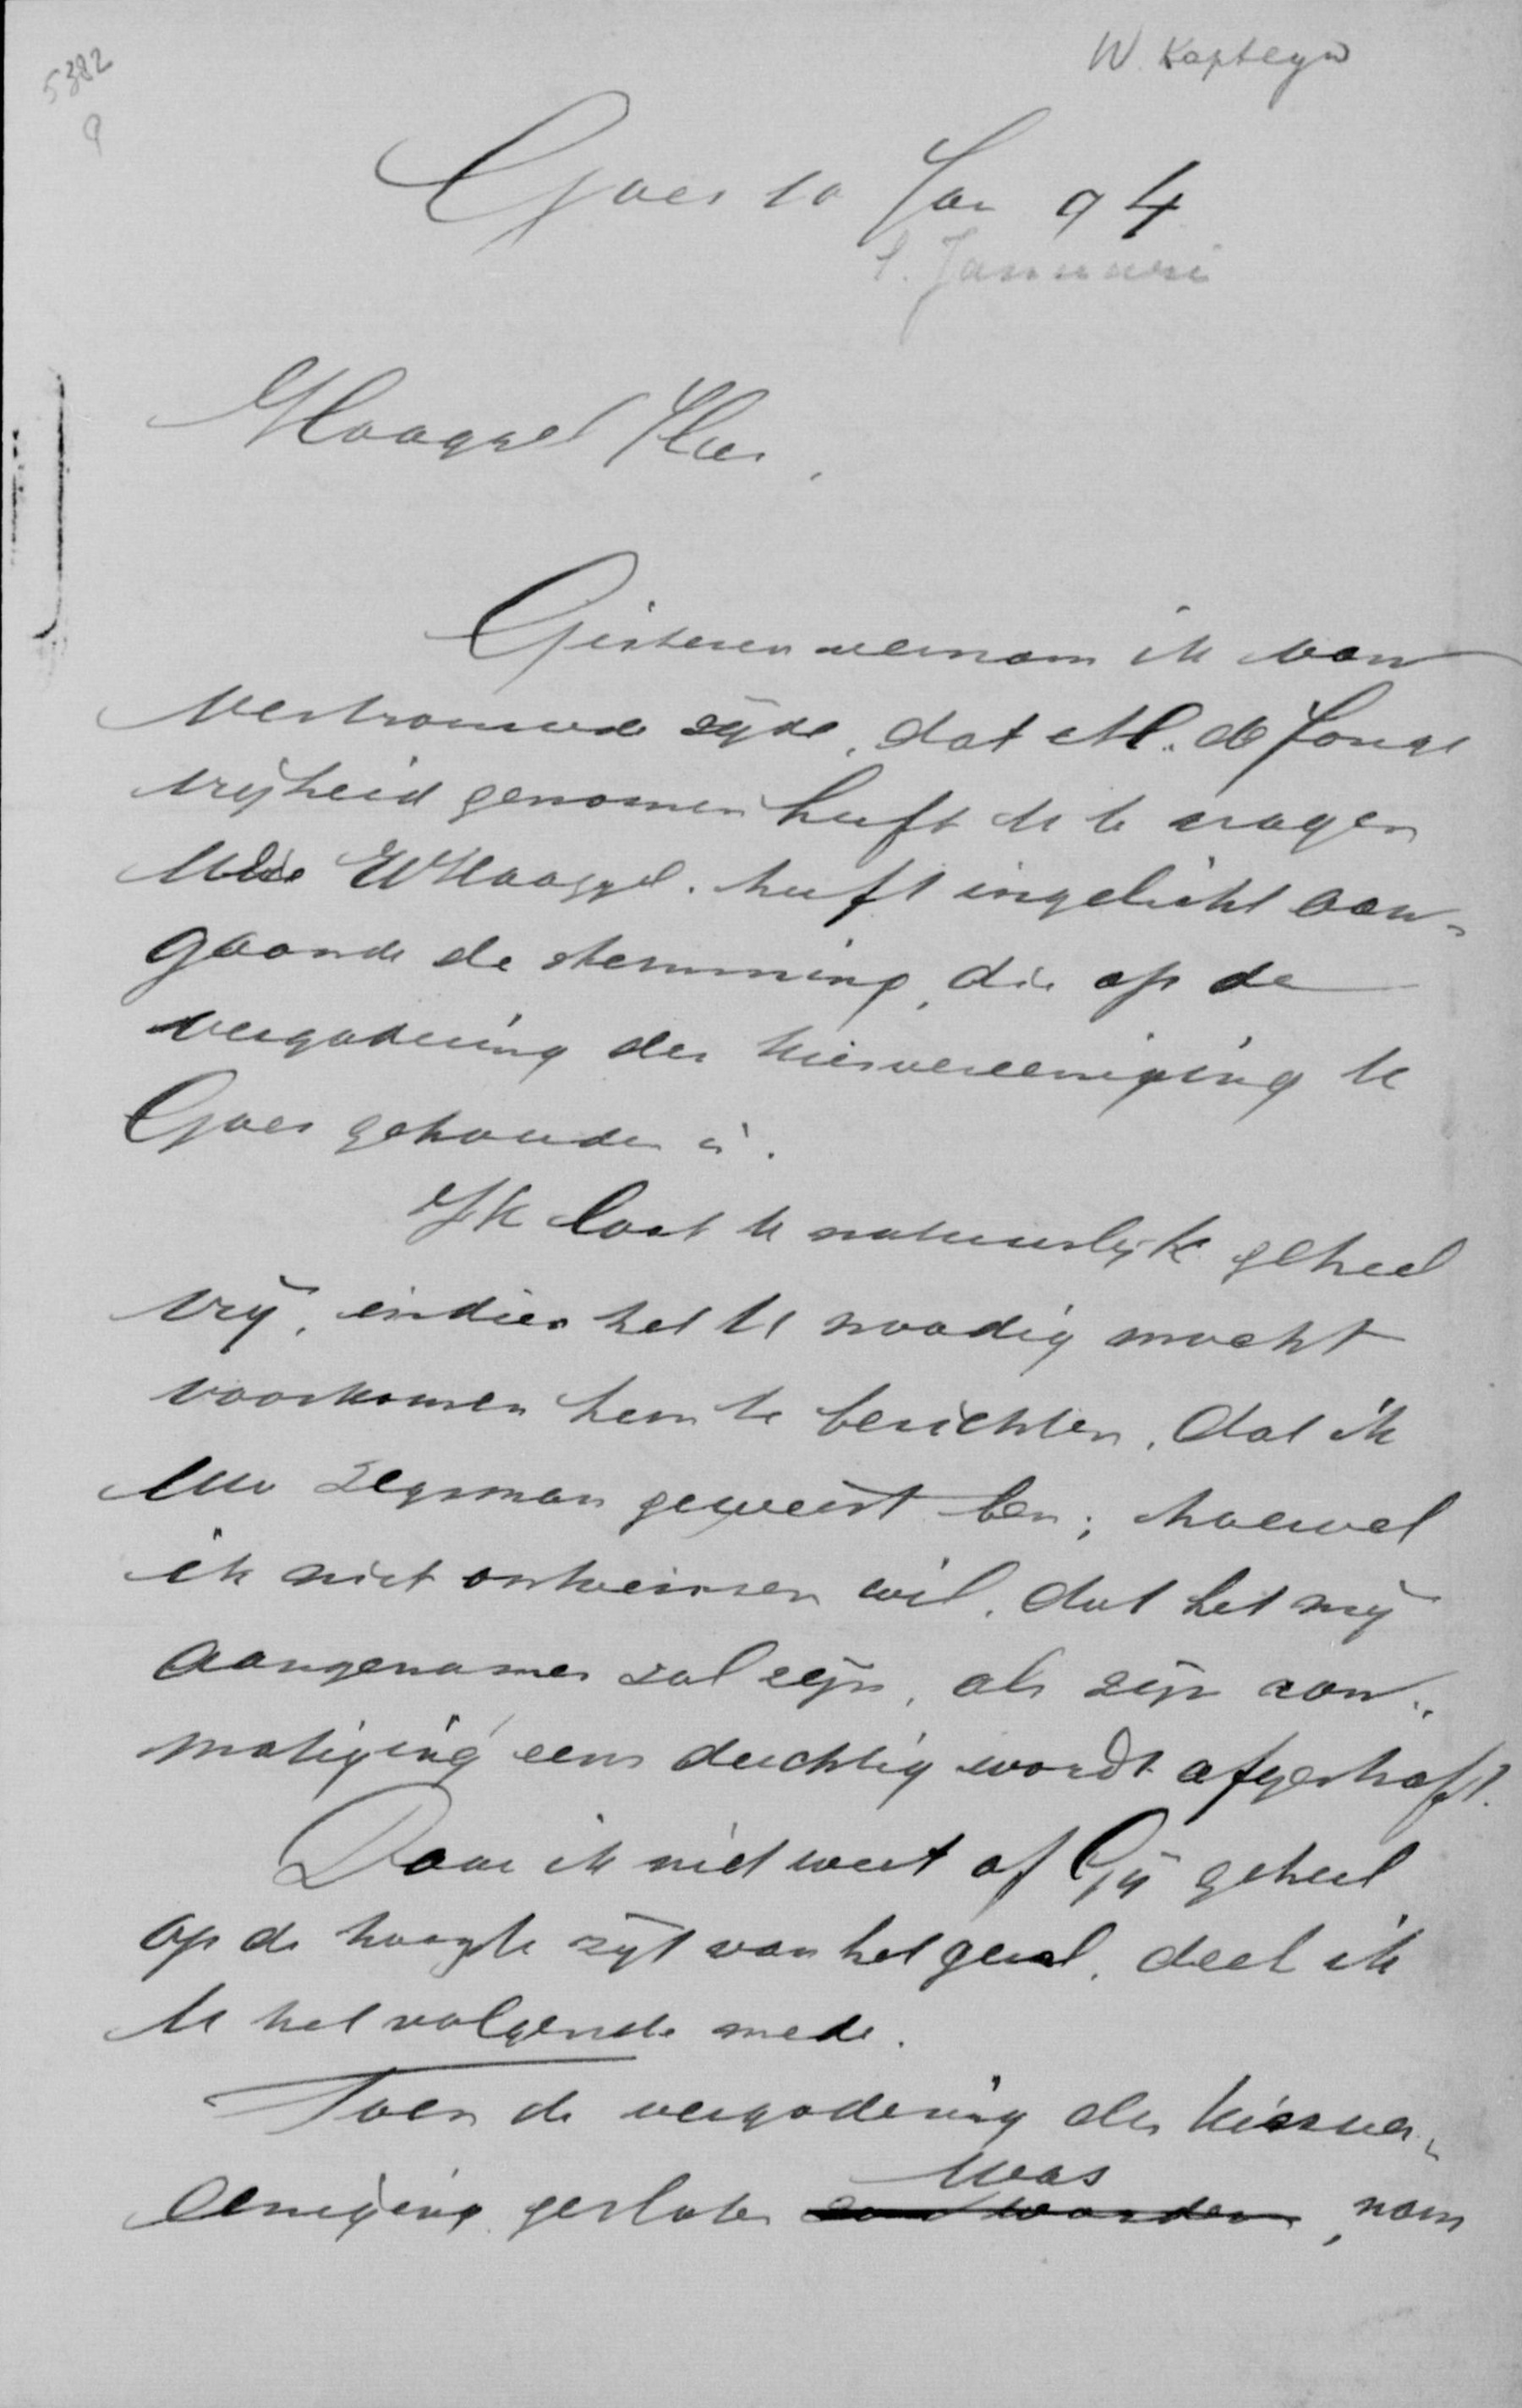 5382
9
W. Kapteyn
Goes 10 Jan 94
Januari
Hooggel Heer,
Gisteren vernam ik van
vertrouwde zijde, dat M. de Jonge
vrijheid genomen heeft U te vragen
Wie UWHooggel. heeft ingelicht aan-
gaande de stemming, die op de
vergadering der kiesvereeniging te
Goes gehouden is.
Ik laat U natuurlijk geheel
vrij, indien het U noodig mocht
voorkomen hem te berichten, dat ik
uw zegsman geweest ben; hoewel
ik niet ontveinzen wil, dat het mij
aangenamer zal zijn, als zijn aan-
matiging eens duchtig wordt afgestraft.
Daar ik niet weet of Gij geheel
op de hoogte zijt van het geval, deel ik
U het volgende mede.
Toen de vergadering der kiesver-
eeniging gesloten was, nam